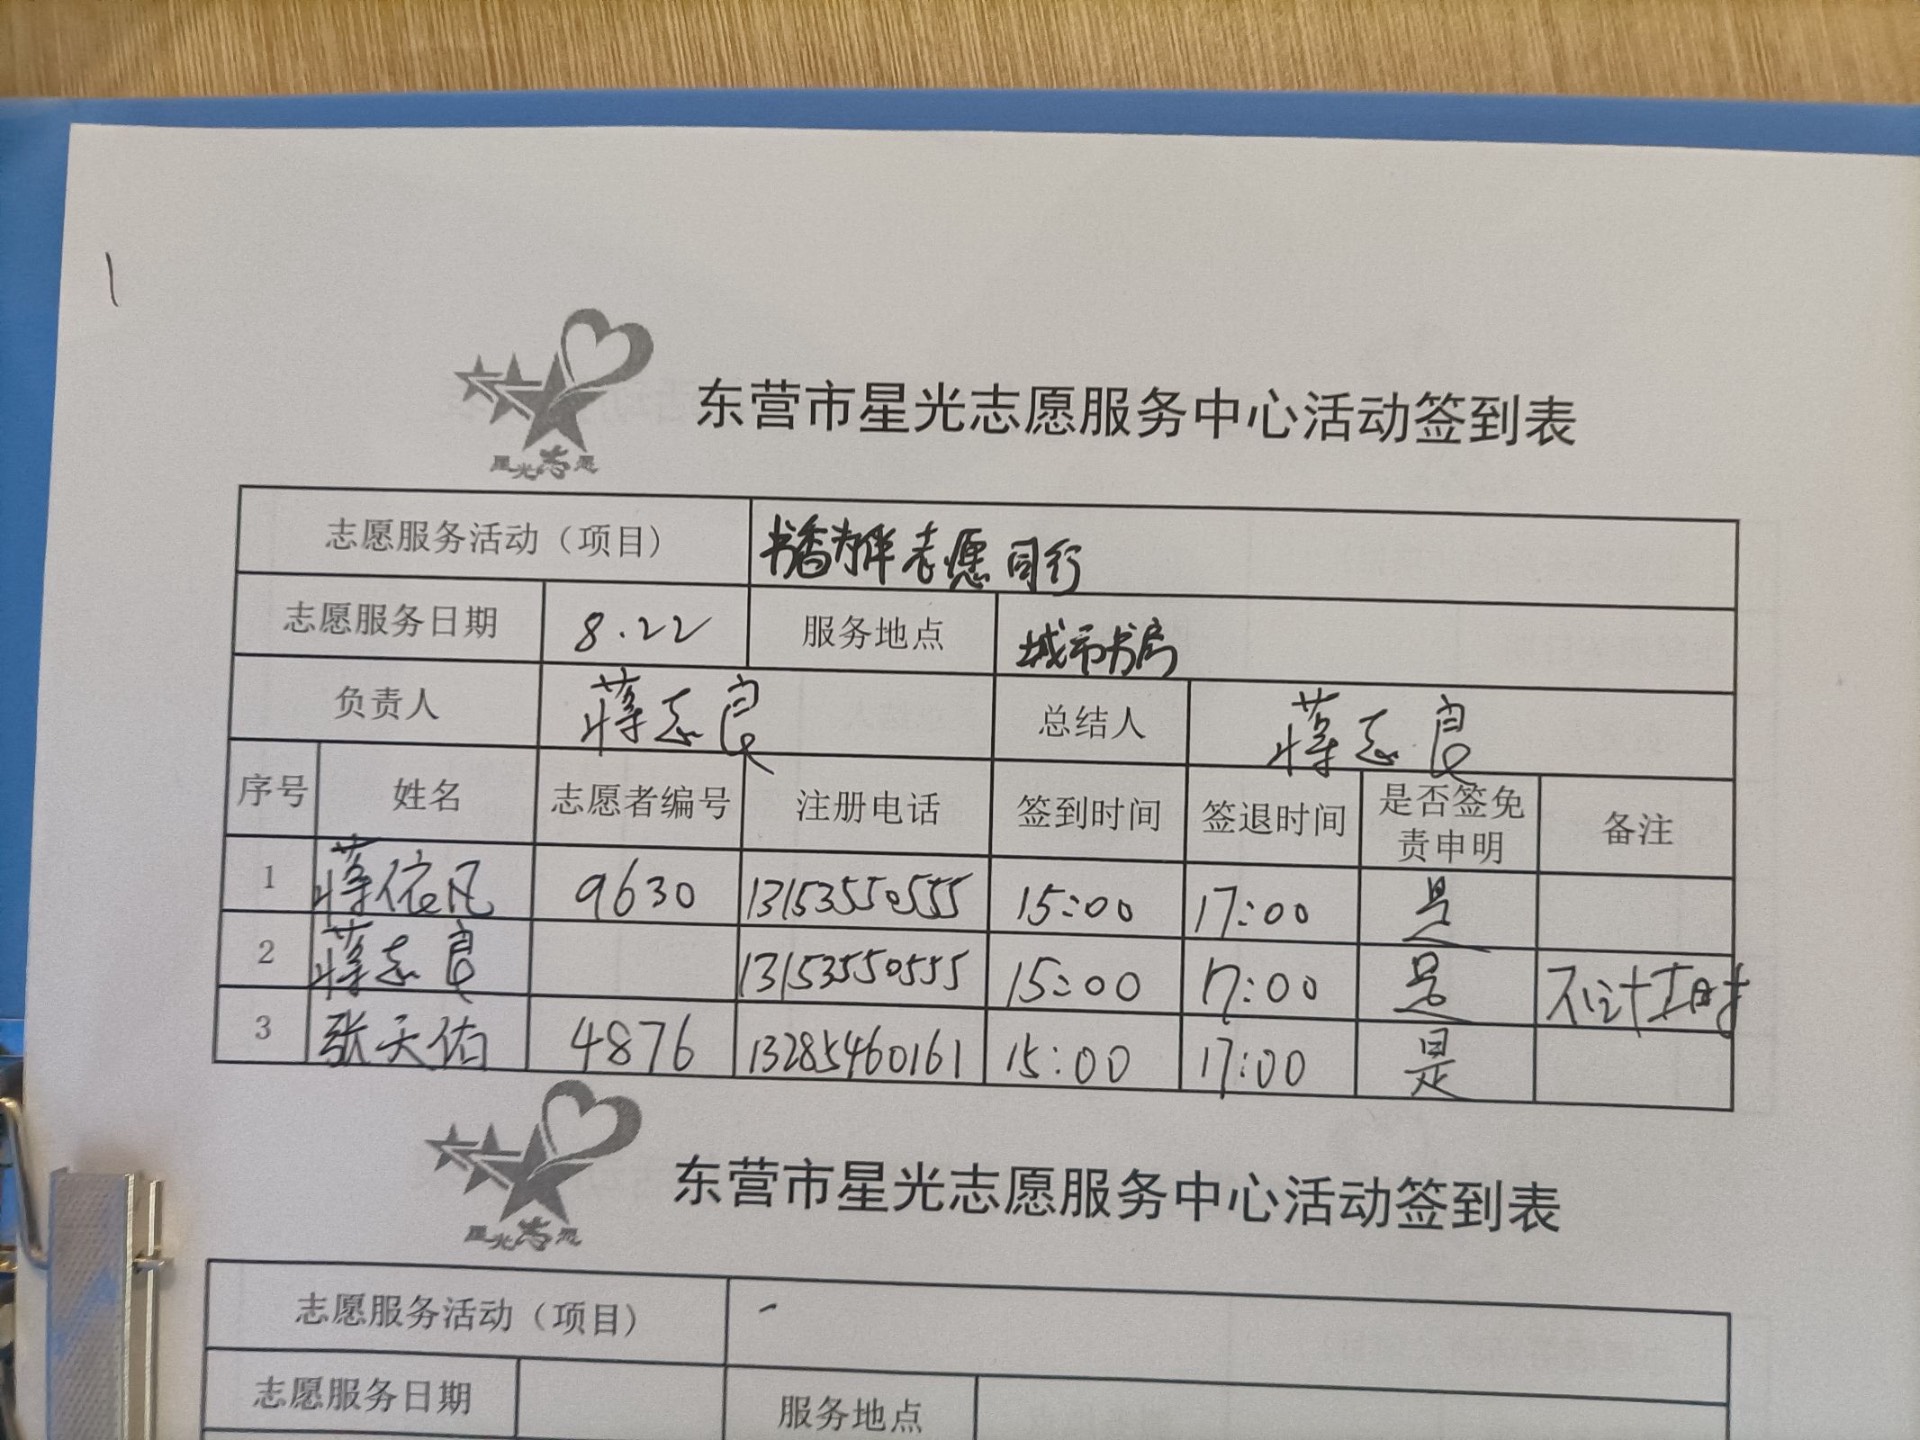 东营市星光志愿服务中心活动签到表
星光志愿
志愿服务活动（项目） 书香为伴志愿同行
志愿服务日期 8.22 服务地点 城市书房
负责人 蒋志良 总结人 蒋志良
序号 姓名 志愿者编号 注册电话 签到时间 签退时间 是否签免责申明 备注
1 蒋依凡 9630 13153550555 15:00 17:00 是
2 蒋志良 13153550555 15:00 17:00 是 不计工时
3 张天佑 4876 13285460161 15:00 17:00 是
东营市星光志愿服务中心活动签到表
星光志愿
志愿服务活动（项目）
志愿服务日期 服务地点